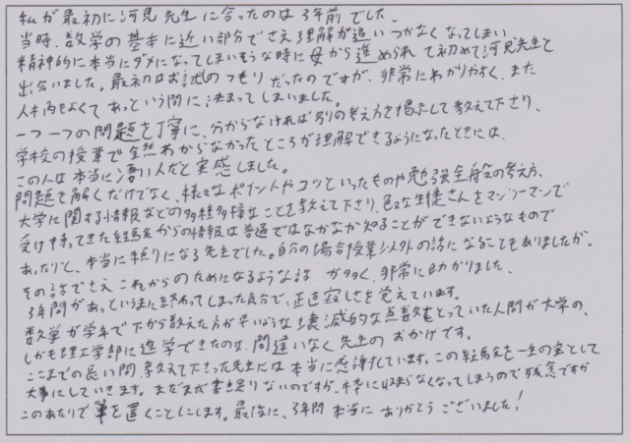 私が最初に河見先生に会ったのは3年前でした。
当時、数学の基本に近い部分でさえ理解が追いつかなくなってしまい、
精神的に本当にダメになってしまいそうな時に母から進められて初めて河見先生と
出会いました。最初はお試しのつもりだったのですが、非常にわかりやすく、また
人柄もよくてあっという間に決まってしまいました。
一つ一つの問題を丁寧に、分からなければ別の考え方を提示して教えて下さり、
学校の授業で全然わからなかったところが理解できるようになったときには、
この人は本当に凄い人だと実感しました。
問題を解くだけでなく、様々なポイントやコツといったものや勉強全般の考え方、
大学に関する情報などの多種多様なことを教えて下さり、色々な生徒さんをマンツーマンで
受け持ってきた経験からの情報は普通ではなかなか知ることができないようなもので
あったりと、本当に頼りになる先生でした。自分の場合授業以外の話になることもありましたが、
その話でさえこれからのためになるような話が多く、非常に助かりました。
3年間があっというまに終わってしまった気分で、正直寂しさを覚えています。
数学が学年で下から数えた方が早いような壊滅的な点数をとっていた人間が大学の、
しかも理工学部に進学できたのは、間違いなく先生のおかげです。
ここまでの長い間教えて下さった先生には本当に感謝しています。この経験を一生の宝として
大事にしていきます。まだまだ書き足りないのですが、枠に収まらなくなってしまうので残念ですが
このあたりで筆を置くことにします。最後に、3年間本当にありがとうございました!